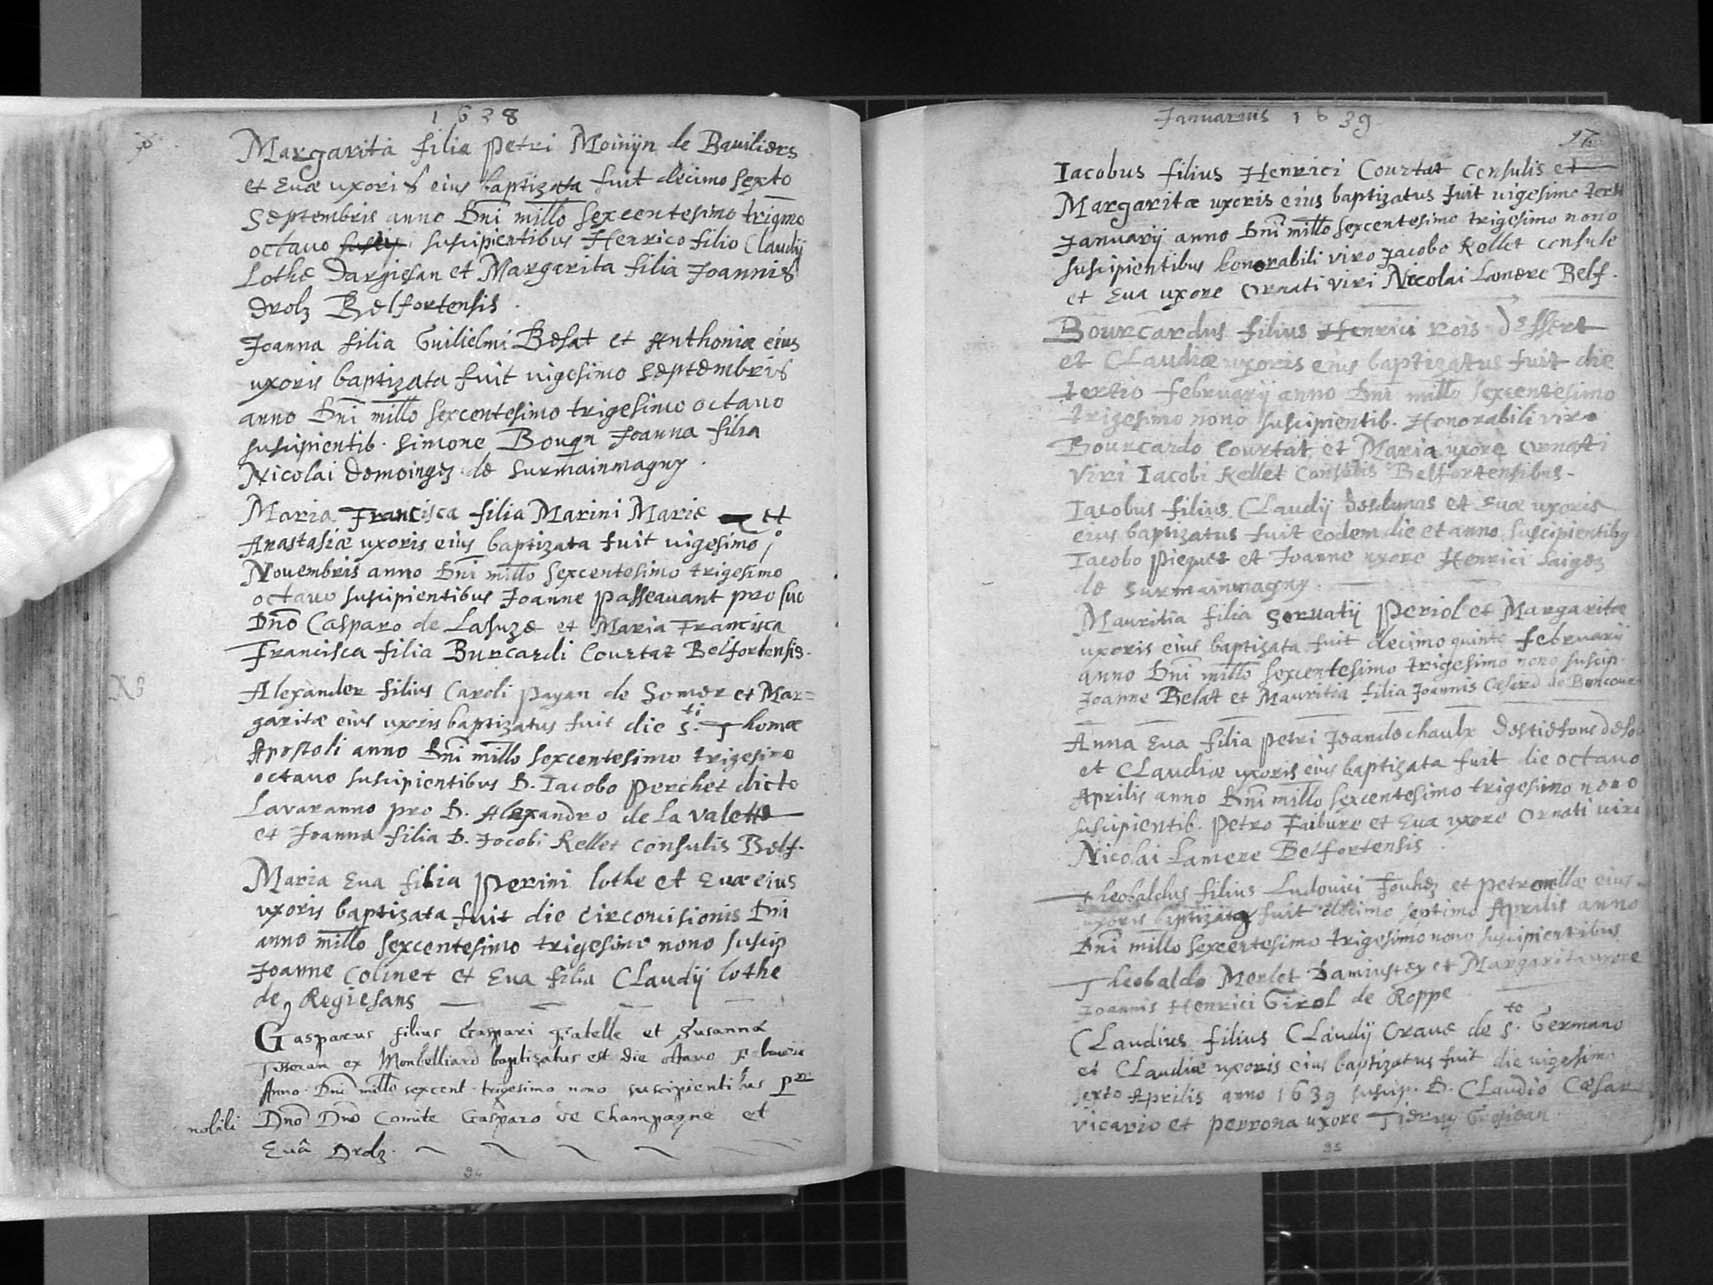 1638
Margarita filia petri Moinÿn de Bauiliers
et Euæ uxoris eius baptizata fuit decimo sexto
Septembris anno Dni millo sexcentesimo trigmo
octauo suscipientibus Henrico filio Claudij
Lothe Dargiesan et Margarita filia Joannis
Drolz Belfortensis.
Joanna filia Guilielmi Belat et Anthoniæ eius
uxoris baptizata fuit uigesimo Septembris
anno Dni millo sexcentesimo trigesimo octauo
suscipientib. Simone Bouqn Joanna filia
Nicolai Domoingez de Surmainmagny.
Maria Francisca filia Marini Marie et
Anastasiæ uxoris eius baptizata fuit uigesimo
Nouembris anno Dni millo sexcentesimo trigesimo
octauo suscipientibus Joanne passeauant pro suo
Dno Casparo de Lasuze et Maria Francisca
Francisca filia Burcardi Courtat Belfortensis.
Alexander filius Caroli payan de Somer et Mar=
garitæ eius uxoris baptizatus fuit die S.ti Thomæ
Apostoli anno Dni millo sexcentesimo trigesimo
octauo suscipientibus D. Iacobo perchet dicto
Lavaranno pro D. Alexandro de la valette
et Joanna filia D. Jocobi Rellet consulis Belf.
Maria Eua filia perini lothe et Euæ eius
uxoris baptizata fuit die circoncisionis Dni
anno millo sexcentesimo trigesimo nono suscip
Joanne Colinet et Eua filia Claudij lothe
de Regiesans
Gasparus filius Gaspari gratelle et Susanna
Tisseran ex Monbelliard baptizatus est die octauo
Anno Dni millo sexcent. trigesimo nono suscipientibus p
nobili Dno Dno Comite Gasparo de Champagne et
Euâ Drolz.
94
Januarius 1639
97
Iacobus filius Henrici Courtat consulis et
Margaritæ uxoris eius baptizatus fuit uigesimo tertio
Januarij anno Dni millo sexcentesimo trigesimo nono
suscipientibus honorabili viro Jacobo Rellet consule
et Eua uxore ornati viri Nicolai Lamere Belf.
Bourcardus filius Henrici rois Deffert
et Claudiæ uxoris eius baptizatus fuit die
tertio february anno Dni millo sexcentesimo
trigesimo nono suscipientib. Honorabili viro
Bourcardo Courtat et Maria uxore ornatti
Viri Iacobi Rellet Consulis Belfortensibus.
Iacobus filius Claudij et Euæ uxoris
eius baptizatus fuit eodem die et anno suscipientibus
Iacobo piequet et Joanne uxore Henrici Laigez
de Surmainmagny.
Mauritia filia Seruatij Periol et Margaritæ
uxoris eius baptizata fuit decimo quinto february
anno Dni millo sexcentesimo trigesimo nono suscip.
Joanne Belat et Mauritia filia Joannis Cæsard de
Anna Eua filia petri Jeandechaulx
et Claudiæ uxoris eius baptizata fuit die octauo
Aprilis anno Dni millo sexcentesimo trigesimo nono
suscipientib. petro Faibure et Eua uxore ornati uiri
Nicolai Lamere Belfortensis.
Theobaldus filius Ludouici Jouhez et petronillæ eius
uxoris baptizatus fuit decimo septimo Aprilis anno
Dni millo sexcentesimo trigesimo nono suscipientibus
Theobaldo Merlet et Margarita uxore
Joannis Henrici Girol de Roppe
Claudius filius Claudij Craue de S.to Germano
et Claudiæ uxoris eius baptizatus fuit die uigesimo
sexto Aprilis anno 1639 suscip. D. Claudio Cæsar
vicario et perrona uxore Tierry
95